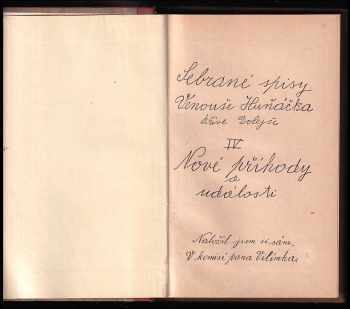 Sebrané spisy
Vénouše Huňáčka
dříve Dolejše
IV
Nové příhody
a
události
Naložil jsem si sám,
V komisi pana Vilímka.